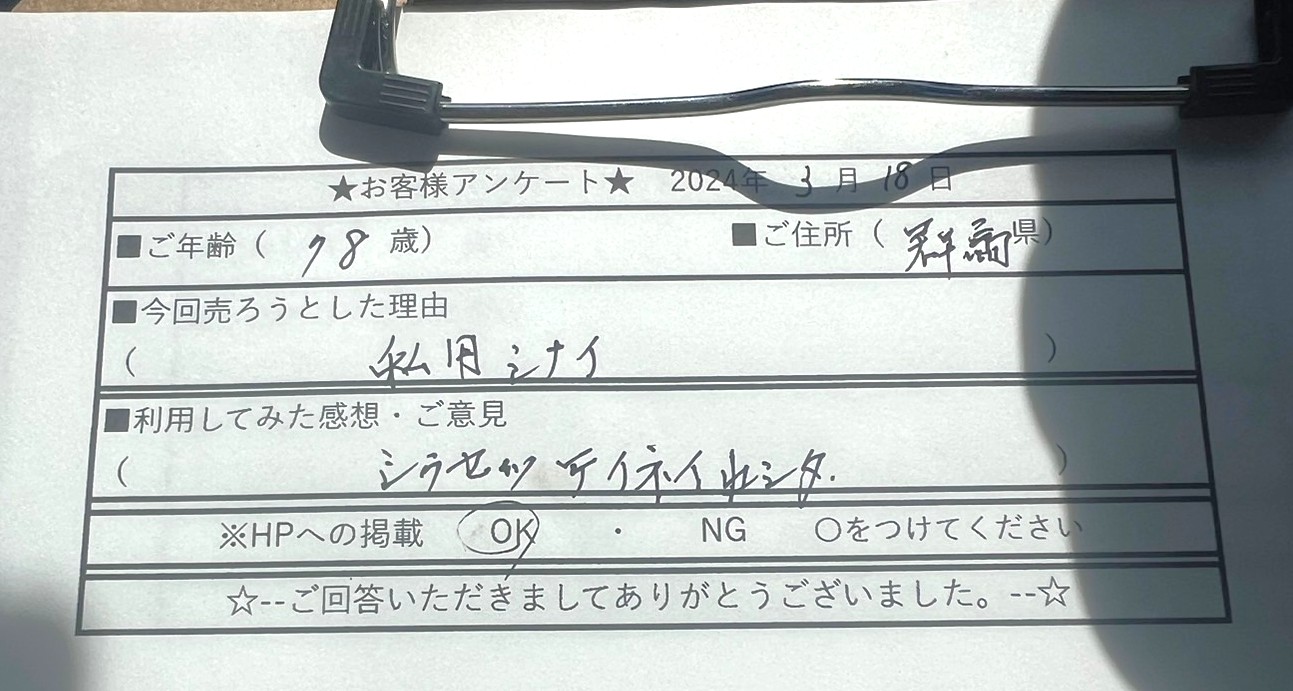 ★お客様アンケート★ 2024年 3月 18日
■ご年齢( 78歳) ■ご住所(群馬県)
■今回売ろうとした理由
( 私用シナイ )
■利用してみた感想・ご意見
( シンセツ テイネイ )
※HPへの掲載 OK ・ NG 〇をつけてください
☆--ご回答いただきましてありがとうございました。--☆